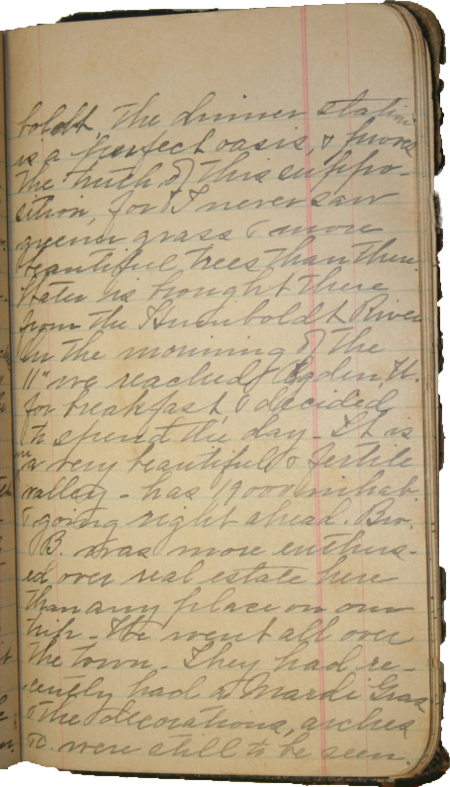 boldt. The dinner station
is a perfect oasis, & proves
the truth of this suppo-
sition, for I never saw
greener grass & more
beautiful trees than there.
Water is brought there
from the Humboldt River
In the morning of the
11" we reached Ogden, U.
for breakfast & decided
to spend the day - It is
in a very beautiful & fertile
valley - has 19000 inhab.
& going right ahead. Bro.
B. was more enthus-
ed over real estate here
than any place on our
trip - He went all over
the town. They had re-
cently had a Mardi Gras
& the decorations, arches
&c. were still to be seen.